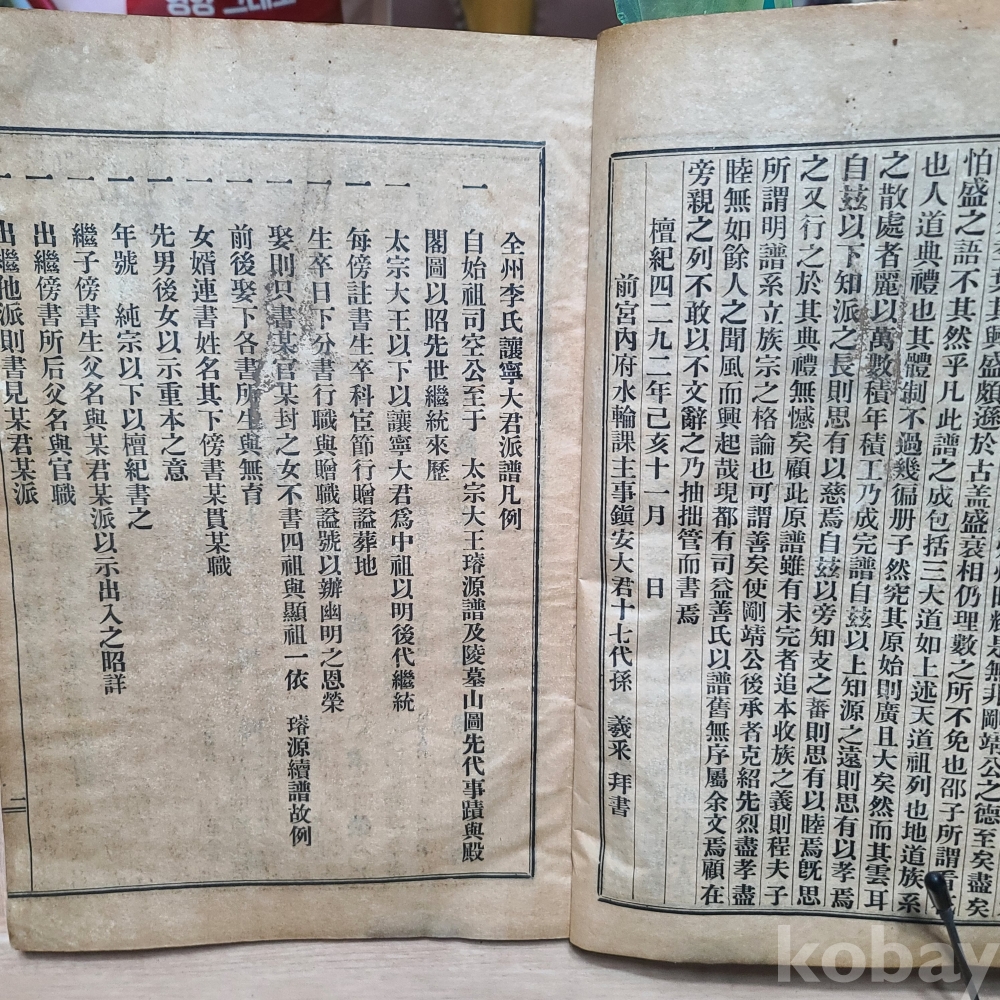 是無非剛靖公之德至矣盡矣
其興盛頗遜於古盖盛衰相仍理數之所不免也邵子所謂看
怕盛之語不其然乎凡此譜之成包括三大道如上述天道祖列也地道族系
也人道典禮也其體制不過幾徧册子然究其原始則廣且大矣然而其雲耳
之散處者麗以萬數積年積工乃成完譜自玆以上知源之遠則思有以孝焉
自玆以下知派之長則思有以慈焉自玆以旁知支之蕃則思有以睦焉旣思
之又行之於其典禮無憾矣顧此原譜雖有未完者追本收族之義則程夫子
所謂明譜系立族宗之格論也可謂善矣使剛靖公後承者克紹先烈盡孝盡
睦無如餘人之聞風而興起哉現都有司益善氏以譜舊無序屬余文焉顧在
旁親之列不敢以不文辭之乃抽拙管而書焉
檀紀四二九二年己亥十一月　日
前宮內府水輪課主事鎭安大君十七代孫　羲采　拜書
全州李氏讓寧大君派譜凡例
一　自始祖司空公至于　太宗大王璿源譜及陵墓山圖先代事蹟與殿
閣圖以昭先世繼統來歷
一　太宗大王以下以讓寧大君爲中祖以明後代繼統
一　每傍註書生卒科宦節行贈謚葬地
一　生卒日下分書行職與贈職謚號以辦幽明之恩榮
一　娶則只書某官某封之女不書四祖與顯祖一依　璿源續譜故例
一　前後娶下各書所生與無育
一　女婿連書姓名其下傍書某貫某職
一　先男後女以示重本之意
一　年號　純宗以下以檀紀書之
一　繼子傍書生父名與某君某派以示出入之昭詳
一　出繼傍書所后父名與官職
一　出繼他派則書見某君某派
二
kobay